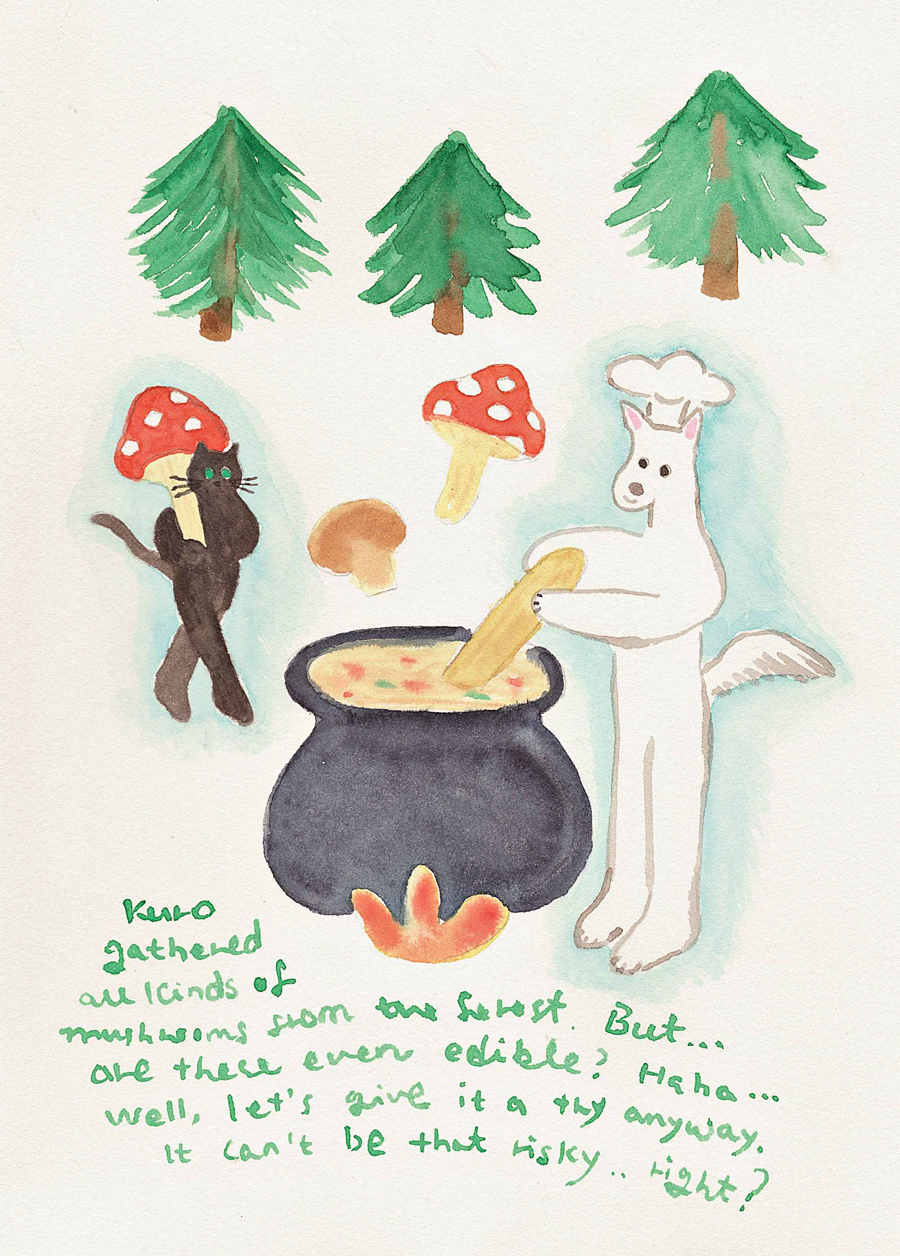 Kuro
gathered
all kinds of
mushrooms from the forest. But...
are these even edible? Haha...
well, let's give it a try anyway.
It can't be that risky.. right?